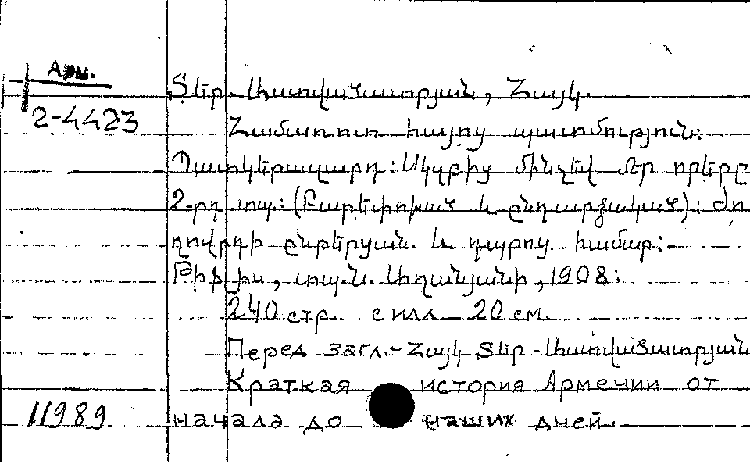 Арм.
2-4423
Տեր-Աստվածատրյան, Հայկ.
Համառոտ հայոց պատմություն:
Պատկերազարդ: Սկզբից մինչեվ մեր օրերը
2-րդ տպ: (Բարեփոխած և ընդարձակած): Ժո
ղովրդի ընթերցան. և դպրոց. համար:
Թիֆլիս, տպ.Ն. Աղանյանի, 1908:
240 стр. с илл. 20 см.
Перед загл.- Հայկ Տեր-Աստվածատրյան
Краткая история Армении от
11989 начала до наших дней.